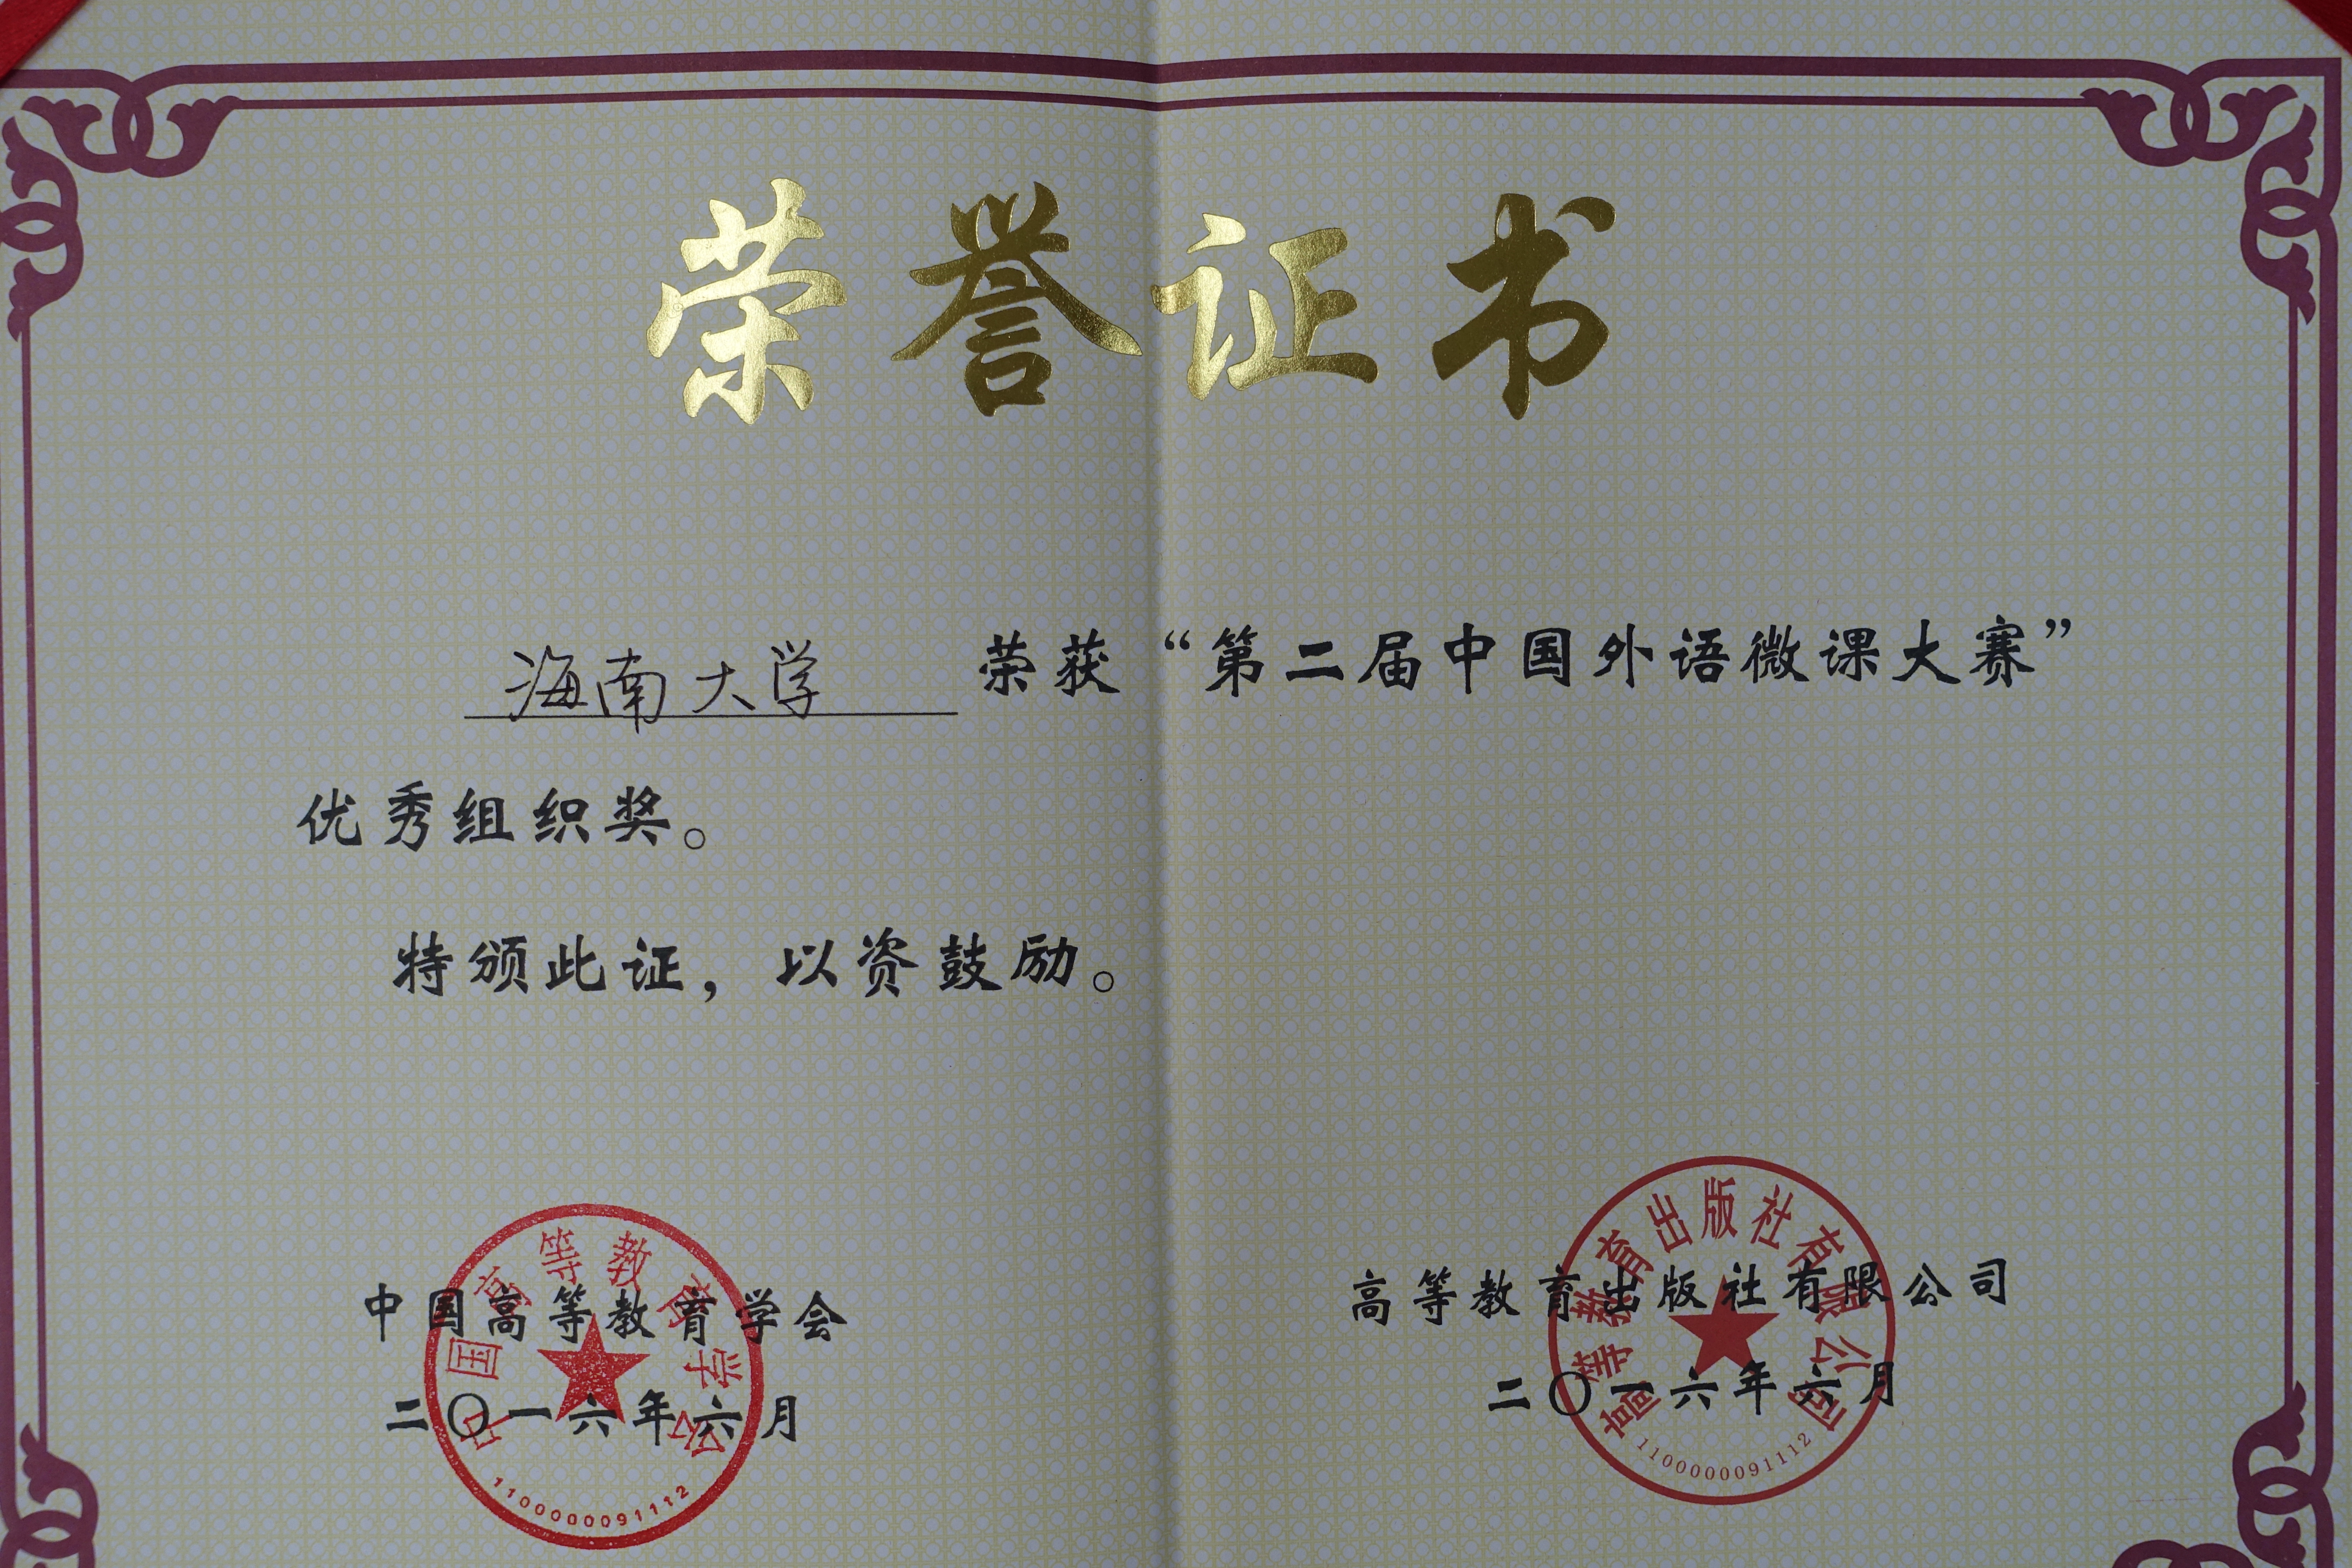 荣誉证书
海南大学 荣获“第二届中国外语微课大赛”
优秀组织奖。
特颁此证，以资鼓励。
中国高等教育学会
二〇一六年六月
中国高等教育学会
1100000091112
高等教育出版社有限公司
二〇一六年六月
高等教育出版社有限公司
1100000091112